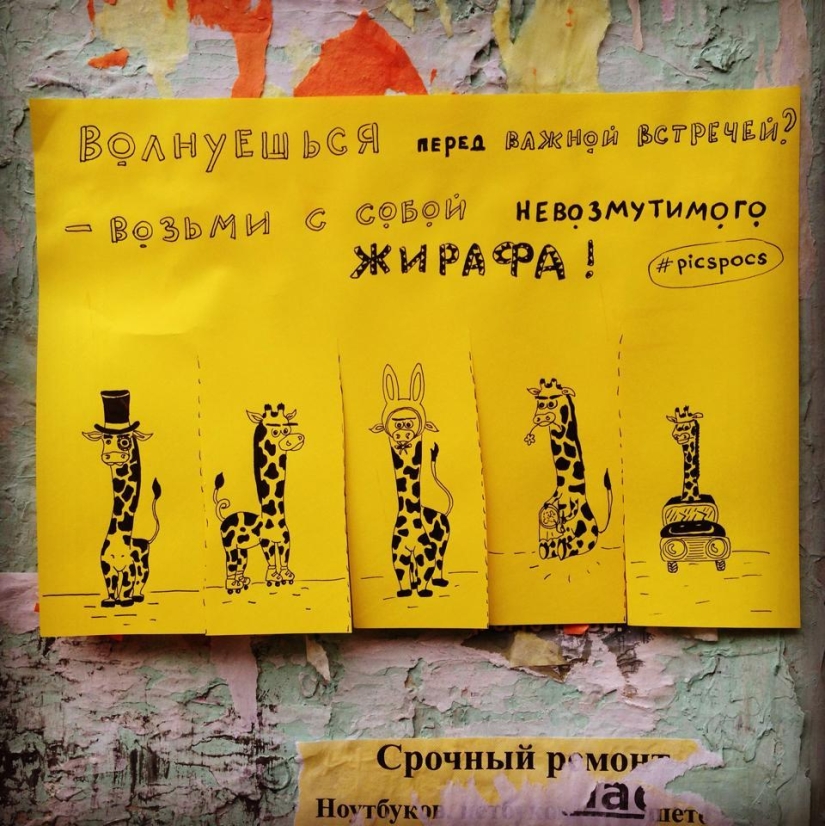 ВОЛНУЕШЬСЯ ПЕРЕД ВАЖНОЙ ВСТРЕЧЕЙ?
– ВОЗЬМИ С СОБОЙ НЕВОЗМУТИМОГО
ЖИРАФА!
#picspocs
Срочный ремонт
Ноутбуков